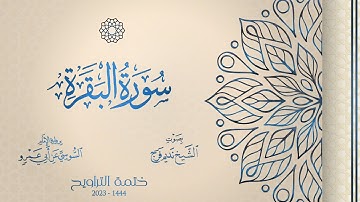 سُورَةُ البَقَرَة
بصوت
الشيخ نديم فرج
برواية
السوسي عن أبي عمرو
ختمة التراويح
2023 - 1444